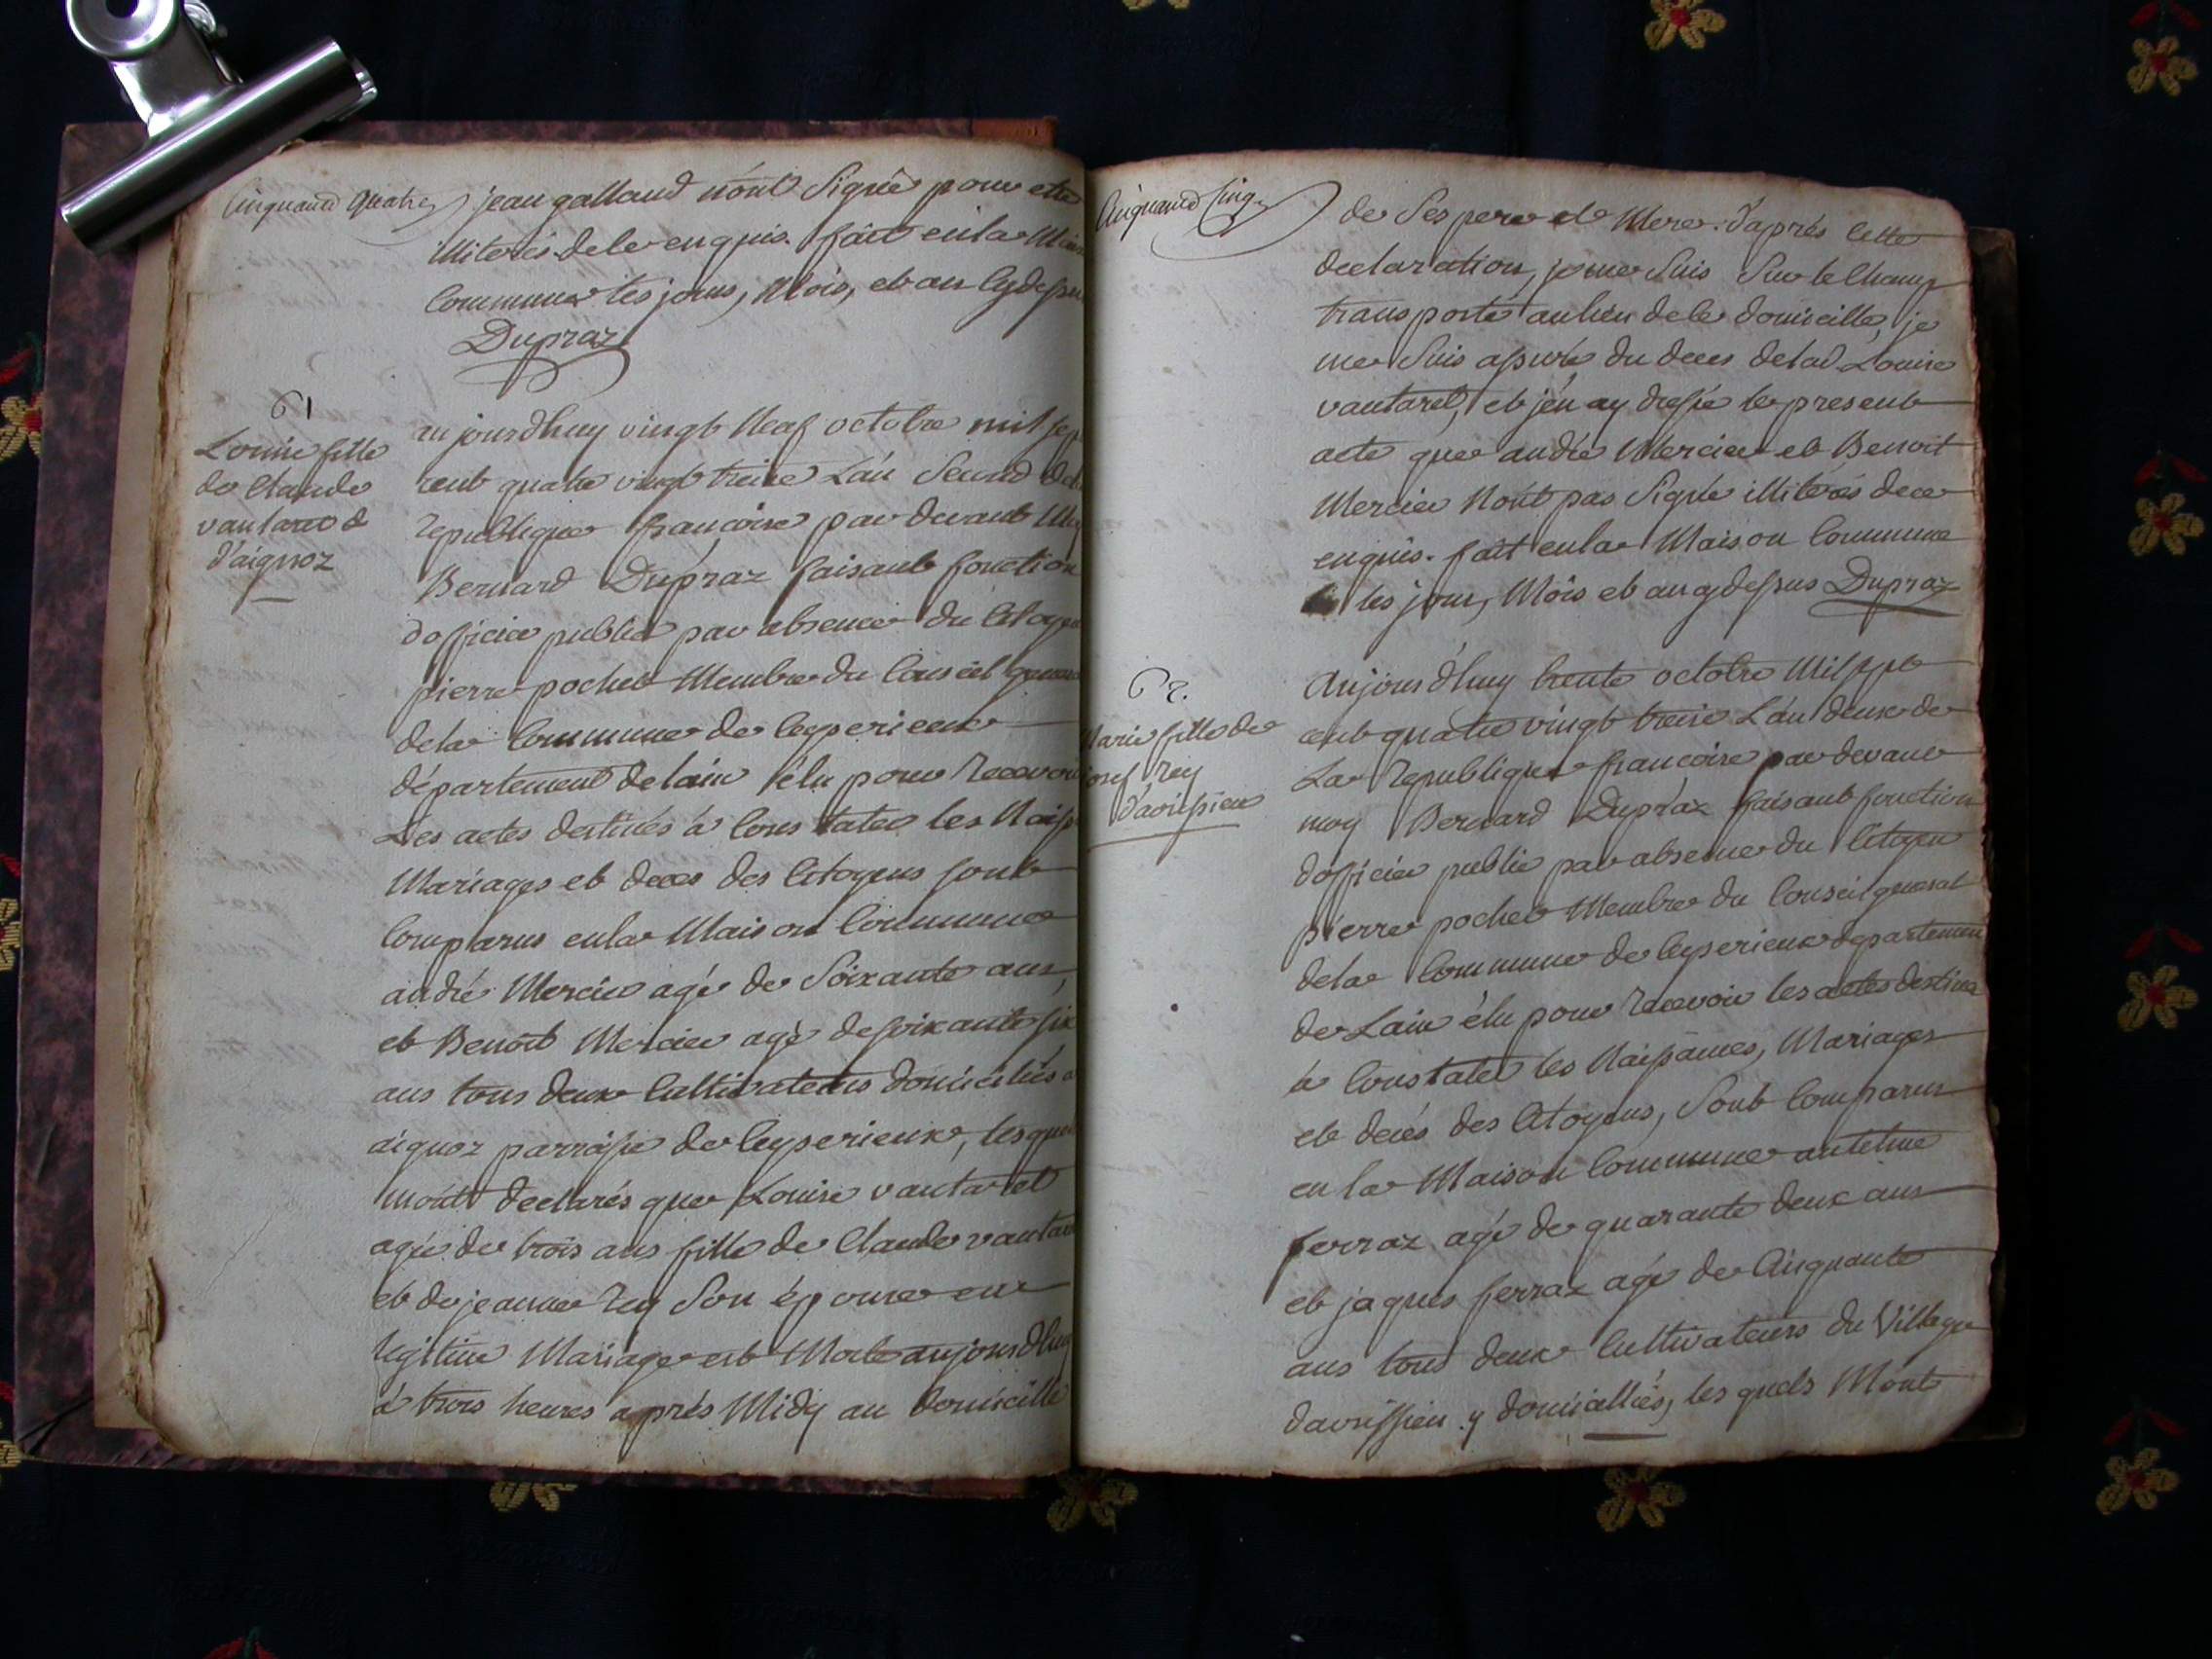 Cinquante quatre
jean galland n'ont Signé pour etre
illiterés de le enquis. fait en la
Commune les jours, Mois, et an cy dessus
Dupraz
61
Louise fille
de Claude
vantaret
d'aignoz
aujourdhuy vingt Neuf octobre mil sept
cent quatre vingt treize L'an Second de la
republique francoise par devant Moy
Bernard Dupraz faisant fonction
dofficier public par absence du Citoyen
pierre pochet Membre du Conseil general
dela Commune de Ceyserieux
département de lain élu pour recevoir
Les actes destinés à Constater les Naiss
Mariages et deces des Citoyens sont
Comparus en la Maison Commune
andré Mercier agé de Soixante ans,
et Benoit Mercier agé de soixante six
ans tous deux Cultivateurs domiciliés a
aignoz parroisse de Ceyserieux, lesquels
m'ont declarés que Louise vantaret
agée de trois ans fille de Claude vantaret
et de jeanne rey Son épouse en
legitime Mariage est Morte aujourdhuy
à trois heures après Midy au domicille
Cinquante Cinq
de Ses pere et Mere. d'après Cette
declaration, je me Suis Sur le Champ
transporté au lieu de le domicille, je
me Suis assuré du deces de lad. Louise
vantaret, et j'en ay dressé le present
acte que andré Mercier et Benoit
Mercier N'ont pas Signé illiterés de ce
enquis. fait en la Maison Commune
les jour, Mois et an cy dessus Dupraz
62.
Marie fille de
josef rey
d'avrissieu
Aujourd'huy trente octobre Mil sept
cent quatre vingt treize L'an deux de
La republique francoise par devant
moy Bernard Dupraz faisant fonction
dofficier public par absence du Citoyen
pierre pochet Membre du Conseil general
dela Commune de Ceyserieux departement
de Lain élu pour recevoir les actes destinés
à Constater les Naissances, Mariages
et decés des Citoyens, Sont Comparus
en la Maison Commune antelme
ferraz agé de quarante deux ans
et jaques ferraz agé de Cinquante
ans tous deux Cultivateurs du Village
davrissieu y domicilliés, les quels M'ont